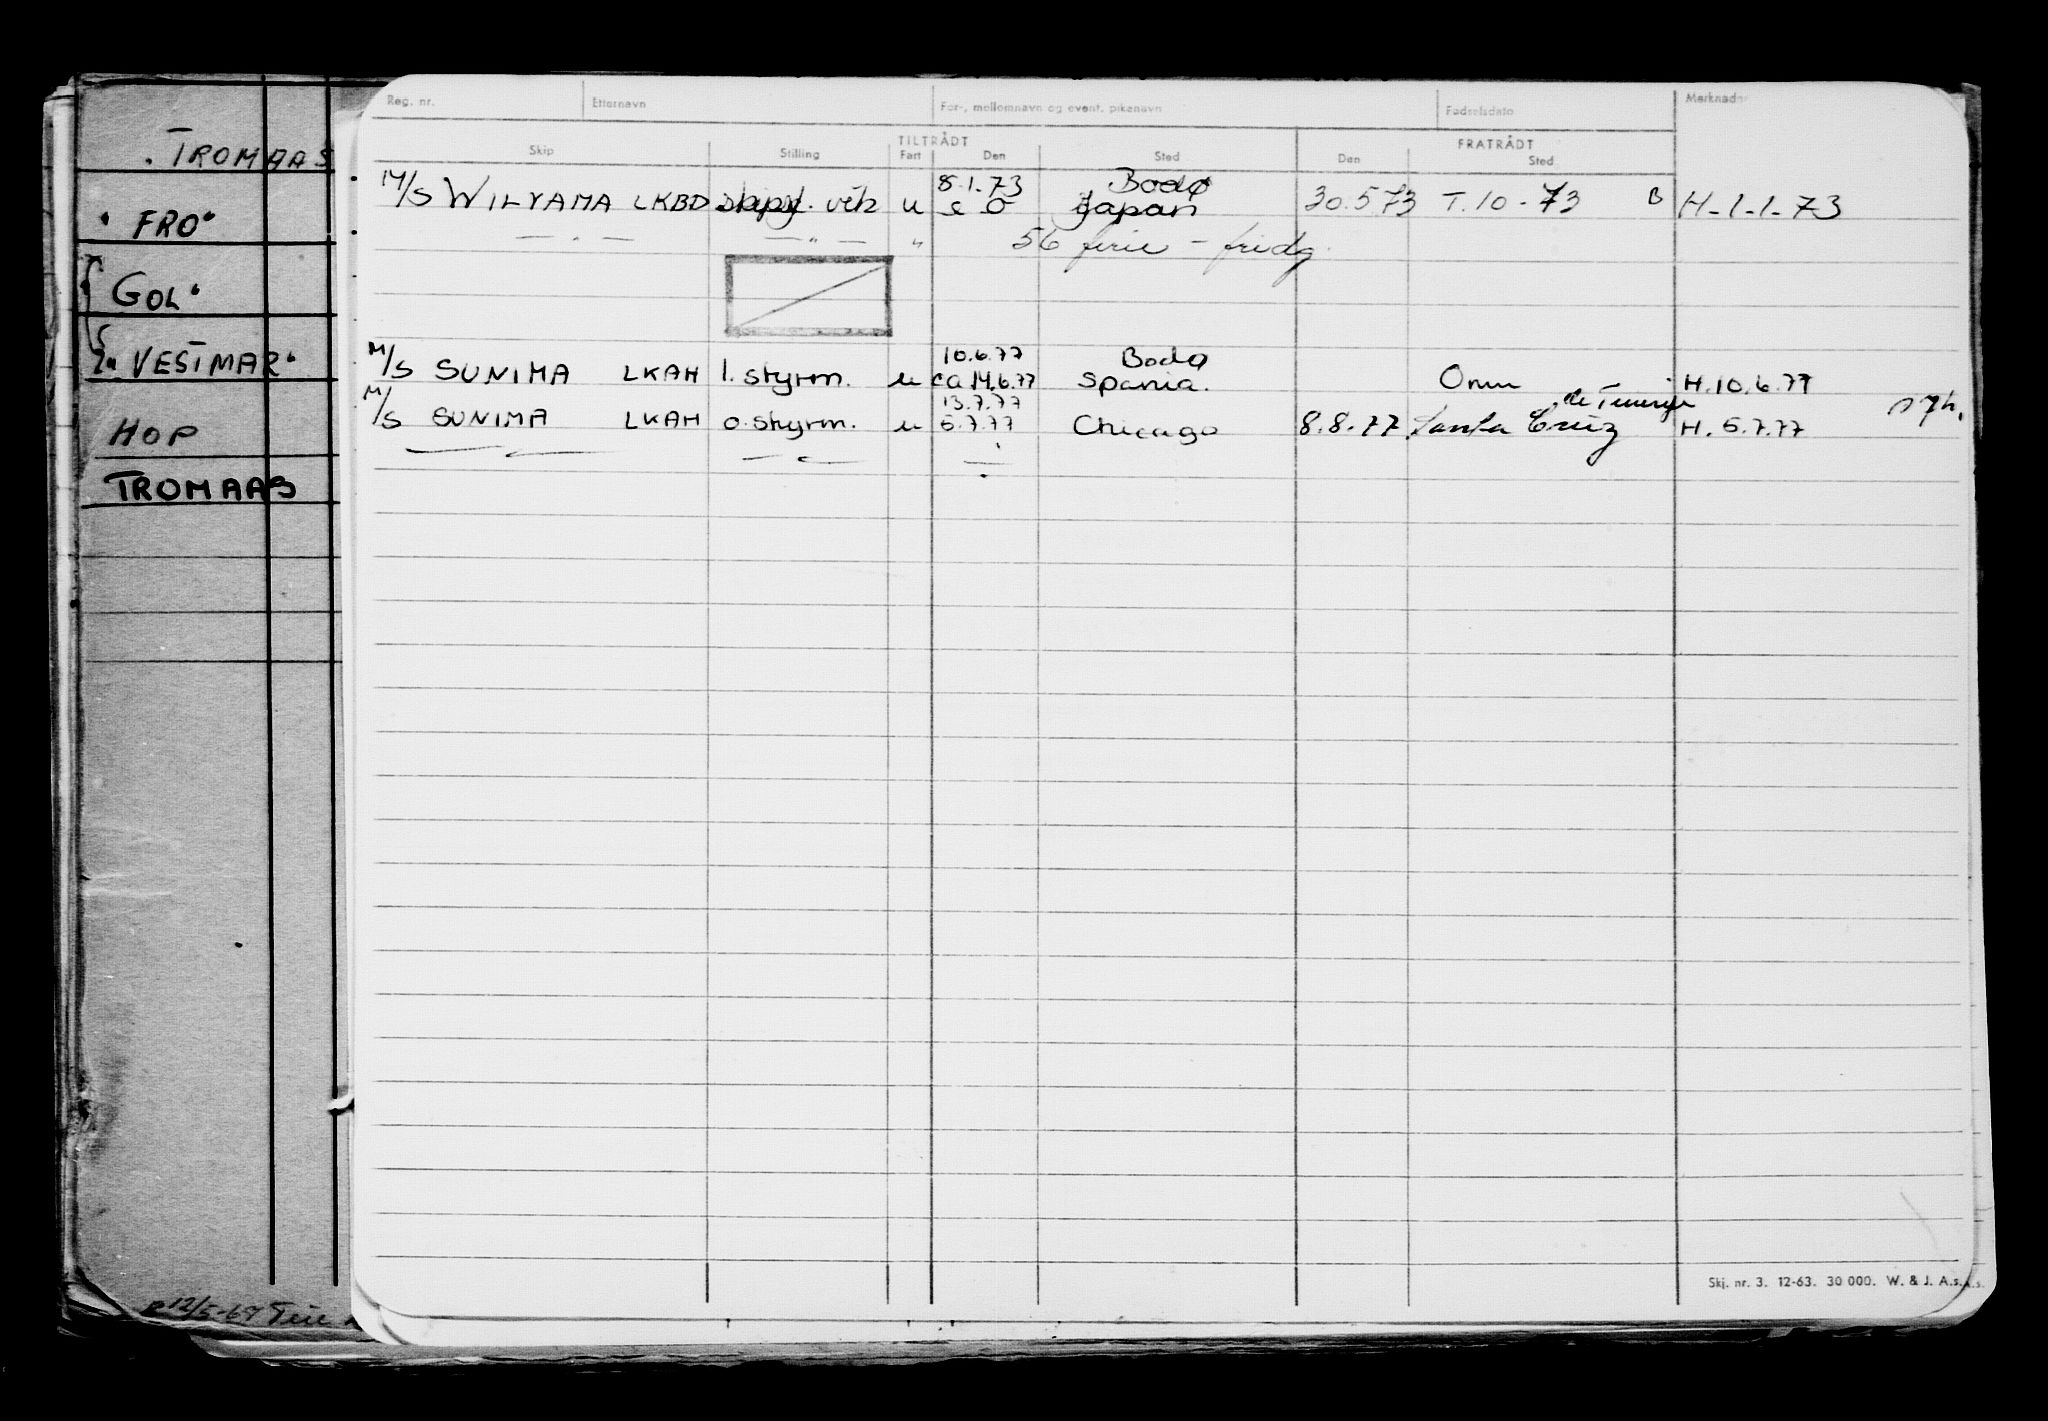 . TROMAAS
" FRO"
GOL"
" VESTMAR"
HOP
TROMAAS
12/5-69
Reg. nr. Etternavn For-, mellomnavn og event. pikenavn Fødselsdato Merknader
TILTRÅDT FRATRÅDT
Skip Stilling Fart Den Sted Den Sted
8.1.73 Bodø
M/S WILYAMA LKBD vik u Japan 30.5.73 T.10-73 B H-1-1-73
— " — — " — " 56 ferie - fridg.
10.6.77 Bodø
M/S SUNIMA LKAH 1. styrm. u ca 14.6.77 Spania. Omm H.10.6.77
13.7.77 de Tenerife
M/S SUNIMA LKAH o.styrm. u 5.7.77 Chicago 8.8.77 Santa Cruz H. 5.7.77
Skj. nr. 3. 12-63. 30 000. W. & J. A.s.